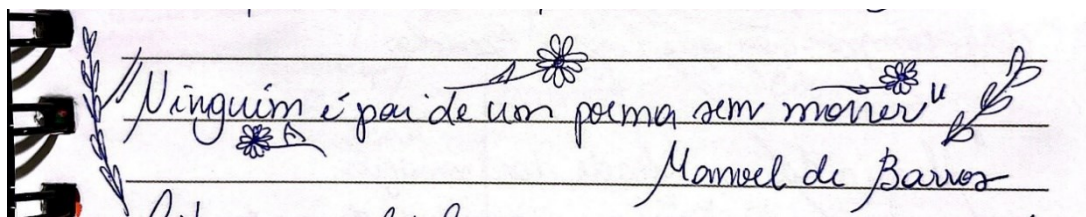 "Ninguém é pai de um poema sem morrer"
Manoel de Barros